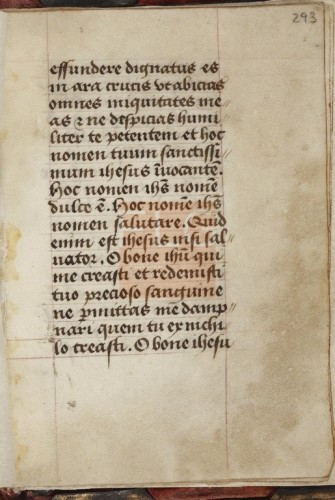 293
effundere dignatus es
in ara crucis ut abicias
omnes iniquitates me
as ⁊ ne despicias humi
liter te petentem et hoc
nomen tuum sanctissi
mum ihesus īuocantē.
Hoc nomen ihs nomē
dulce ē. Hoc nomē ihs
nomen salutare. Quid
enim est ihesus nisi sal
uator. O bone ihū qui
me creasti et redemisti
tuo precioso sanguine
ne ꝑmittas me damp
nari quem tu ex nichi
lo creasti. O bone ihesu